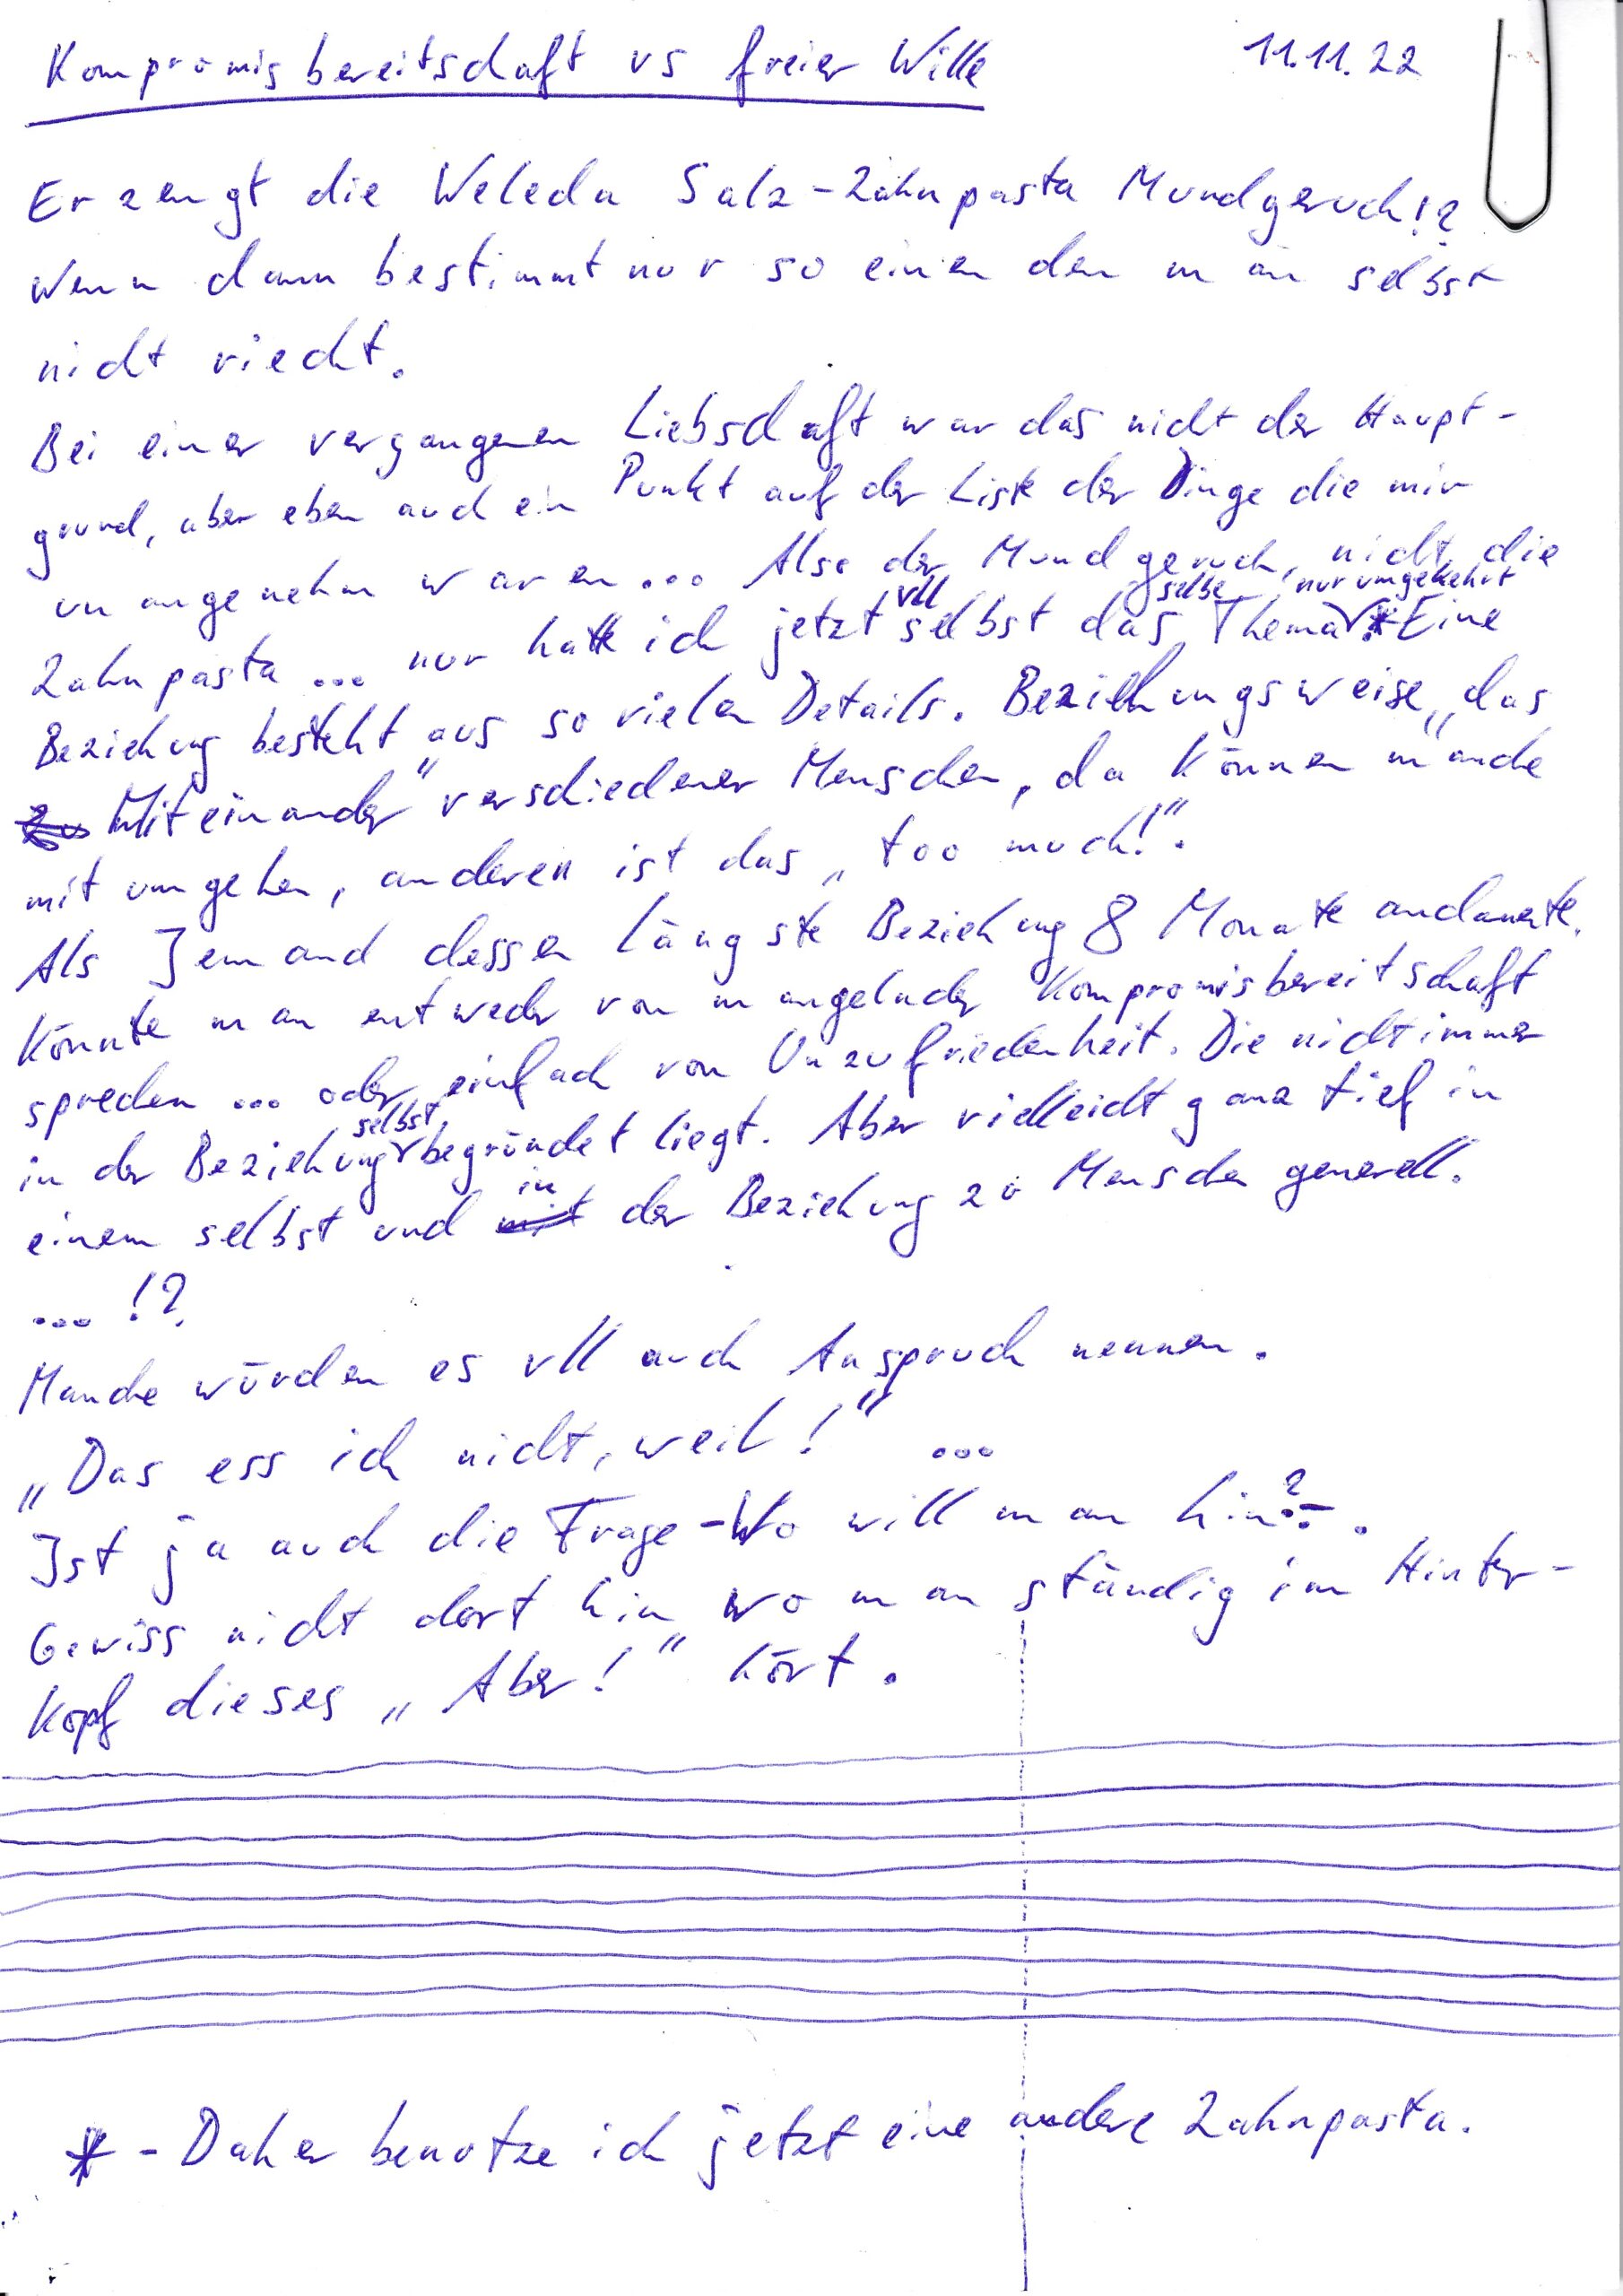 Kompromisbereitschaft vs freier Wille 11.11.22
Erzeugt die Weleda Salz-Zahnpasta Mundgeruch!?
Wenn dann bestimmt nur so einen den man selbst
nicht riecht.
Bei einer vergangenen Liebschaft war das nicht der Haupt-
grund, aber eben auch ein Punkt auf der Liste der Dinge die mir
unangenehm waren... Also der Mundgeruch, nicht die
Zahnpasta ... nur hatte ich jetzt vll selbst das selbe Thema nur umgekehrt.* Eine
Beziehung besteht aus so vielen Details. Beziehungsweise „das
Miteinander" verschiedener Menschen, da können manche
mit umgehen, anderen ist das „too much!".
Als Jemand dessen längste Beziehung 8 Monate andauerte.
Könnte man entweder von mangelnder Kompromisbereitschaft
sprechen ... oder einfach von Unzufriedenheit. Die nicht immer
in der Beziehung selbst begründet liegt. Aber vielleicht ganz tief in
einem selbst und in der Beziehung zu Menschen generell.
... !?
Manche würden es vll auch Anspruch nennen.
„Das ess ich nicht, weil!" ...
Ist ja auch die Frage - Wo will man hin?
Gewiss nicht dort hin wo man ständig im Hinter-
kopf dieses „Aber!" hört.
* - Daher benutze ich jetzt eine andere Zahnpasta.